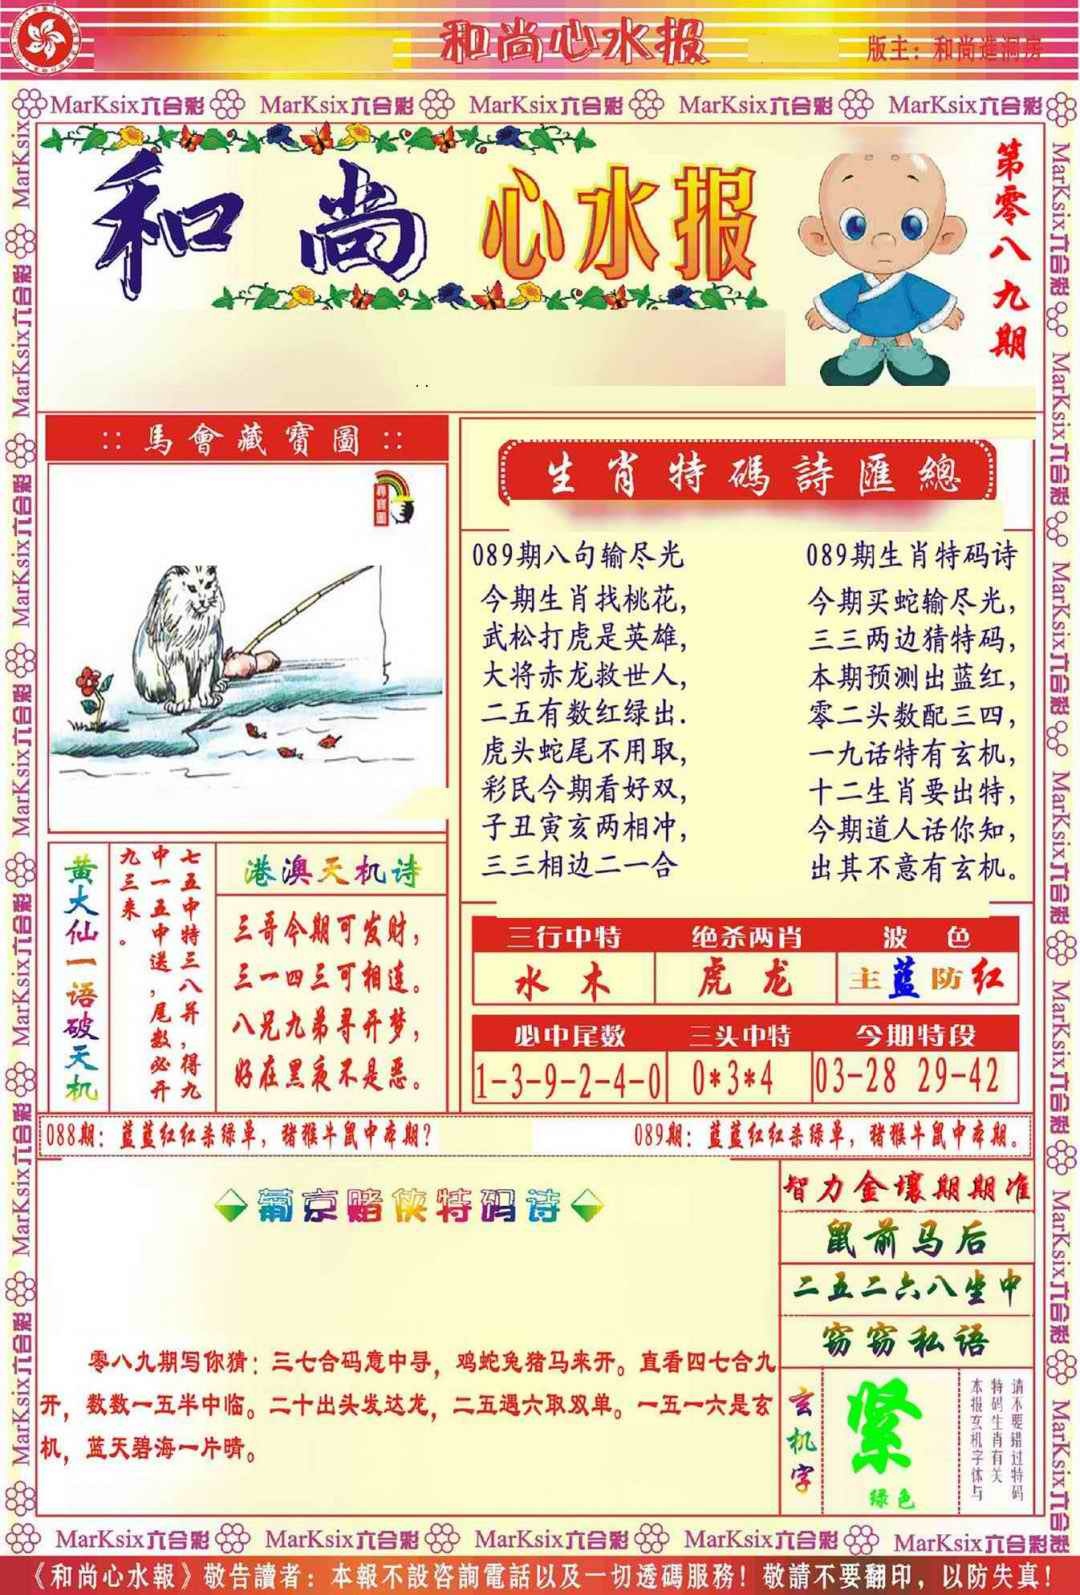 和尚心水报
版主：和尚進洞房
MarKsix六合彩 MarKsix六合彩 MarKsix六合彩 MarKsix六合彩 MarKsix六合彩
和尚心水报
第零八九期
:: 馬會藏寶圖 ::
尋寶圖
生肖特碼詩匯總
089期八句输尽光
今期生肖找桃花，
武松打虎是英雄，
大将赤龙救世人，
二五有数红绿出.
虎头蛇尾不用取，
彩民今期看好双，
子丑寅亥两相冲，
三三相边二一合
089期生肖特码诗
今期买蛇输尽光，
三三两边猜特码，
本期预测出蓝红，
零二头数配三四，
一九话特有玄机，
十二生肖要出特，
今期道人话你知，
出其不意有玄机。
黄大仙一语破天机
七五中特三八并，得九
中一五中送，尾数必开
九三来。
港澳天机诗
三哥今期可发财，
三一四三可相连。
八兄九弟寻开梦，
好在黑夜不是恶。
三行中特 绝杀两肖 波色
水木 虎龙 主蓝防红
必中尾数 三头中特 今期特段
1-3-9-2-4-0 0*3*4 03-28 29-42
088期：蓝蓝红红杀绿单，猪猴牛鼠中本期？ 089期：蓝蓝红红杀绿单，猪猴牛鼠中本期。
葡京赌侠特码诗
零八九期写你猜：三七合码意中寻，鸡蛇兔猪马来开。直看四七合九
开，数数一五半中临。二十出头发达龙，二五遇六取双单。一五一六是玄
机，蓝天碧海一片晴。
智力金壤期期准
鼠前马后
二五二六八坐中
窃窃私语
玄机字
紧
绿色
请不要错过特码
特码生肖有关
本报玄机字体与
MarKsix六合彩 MarKsix六合彩 MarKsix六合彩 MarKsix六合彩 MarKsix六合彩
《和尚心水報》敬告讀者：本報不設咨詢電話以及一切透碼服務！敬請不要翻印，以防失真！